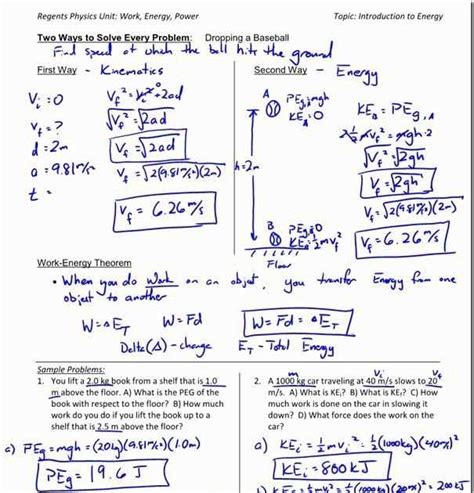 Regents Physics Unit: Work, Energy, Power
Topic: Introduction to Energy
Two Ways to Solve Every Problem: Dropping a Baseball
Find speed at which the ball hits the ground
First Way - Kinematics
Vi = 0
Vf = ?
d = 2m
a = 9.81 m/s²
t =
Vf² = Vi²⁰ + 2ad
√Vf² = √2ad
Vf = √2ad
Vf = √2(9.81 m/s²)(2m)
Vf = 6.26 m/s
Second Way - Energy
A
PEg = mgh
KEA = 0
h = 2m
B
PEg = 0
KEB = ½mvf²
Floor
KEB = PEg,A
2·½mvf² = mgh·2
√Vf² = √2gh
Vf = √2gh
Vf = √2(9.81 m/s²)(2m)
Vf = 6.26 m/s
Work-Energy Theorem
• When you do work on an object, you transfer Energy from one
object to another
W = ΔET W = Fd W = Fd = ΔET
Delta (Δ) - change ET - Total Energy
Sample Problems:
1. You lift a 2.0 kg book from a shelf that is 1.0
m above the floor. A) What is the PEG of the
book with respect to the floor? B) How much
work do you do if you lift the book up to a
shelf that is 2.5 m above the floor?
a) PEg = mgh = (2.0kg)(9.81 m/s²)(1.0m)
PEg = 19.6 J
m Vi Vf
2. A 1000 kg car traveling at 40 m/s slows to 20
m/s. A) What is KEi? B) What is KEf? C) How
much work is done on the car in slowing it
down? D) What force does the work on the
car?
a) KEi = ½mvi² = ½(1000kg)(40m/s)²
KEi = 800 kJ